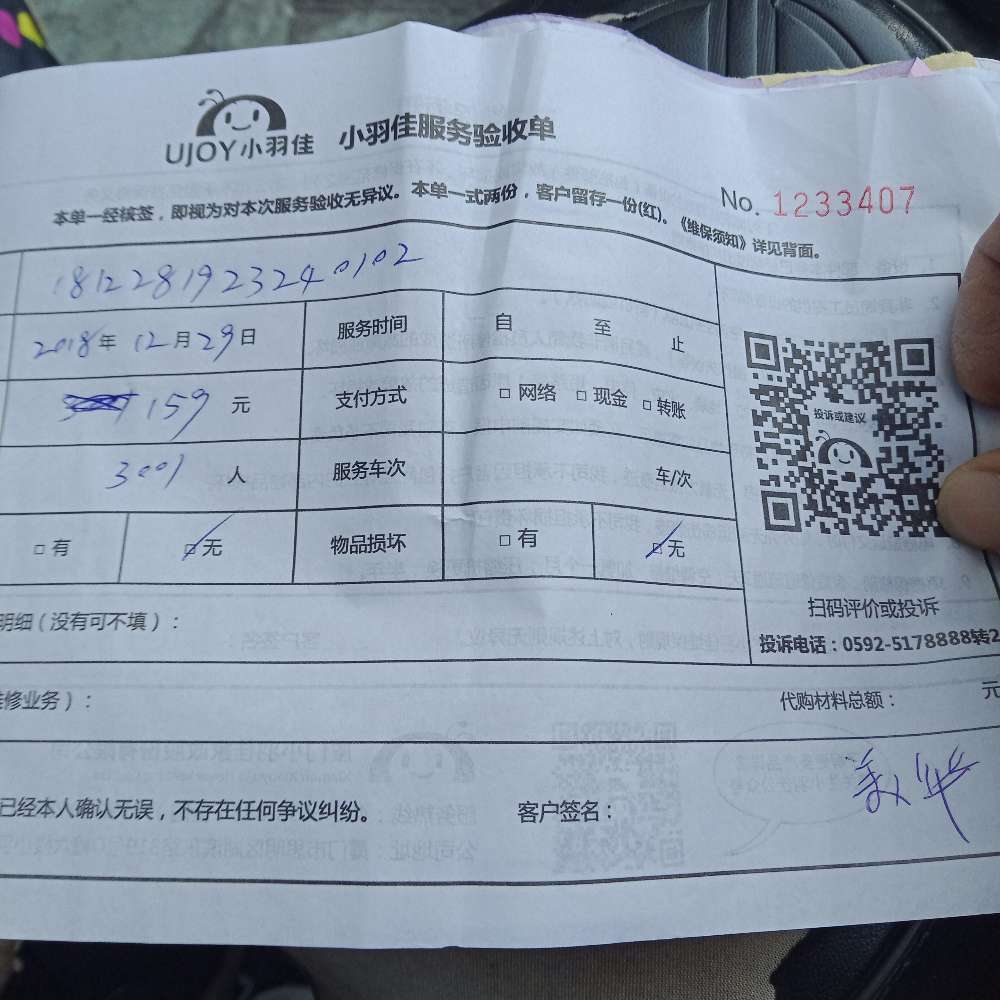 UJOY小羽佳 小羽佳服务验收单
No. 1233407
本单一经核签，即视为对本次服务验收无异议。本单一式两份，客户留存一份(红)。《维保须知》详见背面。
181228192324 0102
2018年 12月29日 服务时间 自 至 止
159 元 支付方式 □ 网络 □ 现金 □ 转账
3001 人 服务车次 车/次
□ 有 □ 无 物品损坏 □ 有 □ 无
投诉或建议
扫码评价或投诉
投诉电话：0592-5178888转2
明细（没有可不填）：
修业务）： 代购材料总额： 元
已经本人确认无误，不存在任何争议纠纷。 客户签名：